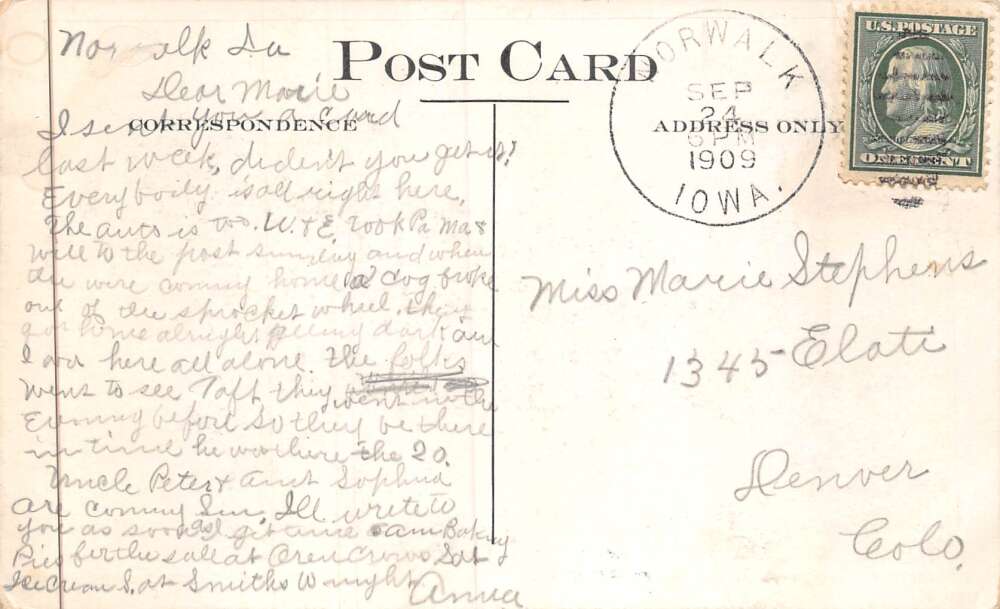 Norwalk Ia
POST CARD
Dear Marie
I sent you a card
CORRESPONDENCE
last week, dident you get it?
Everybody is all right here.
The auto is too. W. & E. took Pa Ma &
Will to the post sunday and when
the were coming home a cog broke
out of the sprocket wheel. They
got home alright getting dark
I am here all alone. The folks
went to see Taft they went in the
Evening before so they be there
in time he was here the 20.
Uncle Peter & Aunt Sophia
are coming Sun, Ill write to
you as soon as I get time am Baking
Pies for the sale at Oren Crows Sat
Ice Cream S. at Smiths W night
Anna
NORWALK
SEP
24
6 PM
1909
IOWA.
U.S. POSTAGE
ONE CENT
ADDRESS ONLY
Miss Marie Stephens
1345 Elati
Denver
Colo.